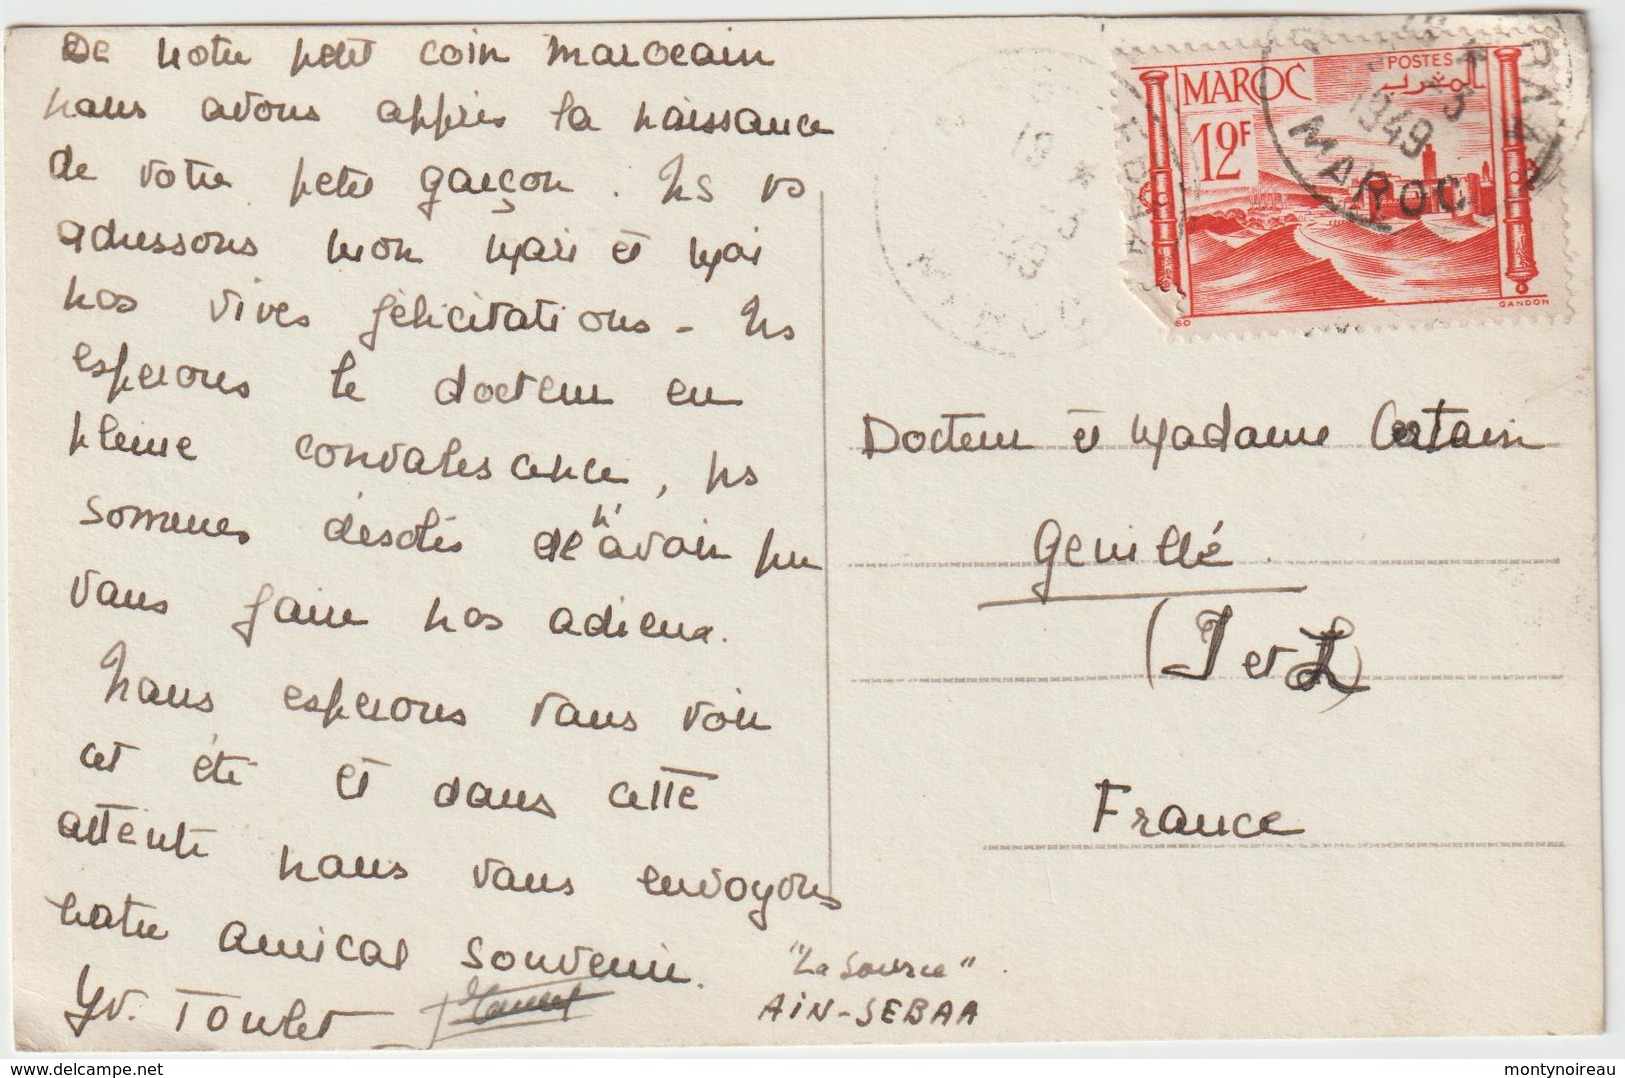 De notre petit coin marocain
nous avons appris la naissance
de votre petit garçon. Ns vs
adressons mon mari et moi
nos vives félicitations - Ns
espérons le docteur en
pleine convalescence, ns
sommes désolés de n'avoir pu
vous faire nos adieux.
Nous espérons vous voir
cet été et dans cette
attente nous vous envoyons
notre amical souvenir.
Yv. Toulet
"La Source"
AIN-SEBAA
POSTES
المغرب
MAROC
12F
GANDON
1949
MAROC
Docteur et Madame Certain
Genillé
(I et L)
France
montynoireau